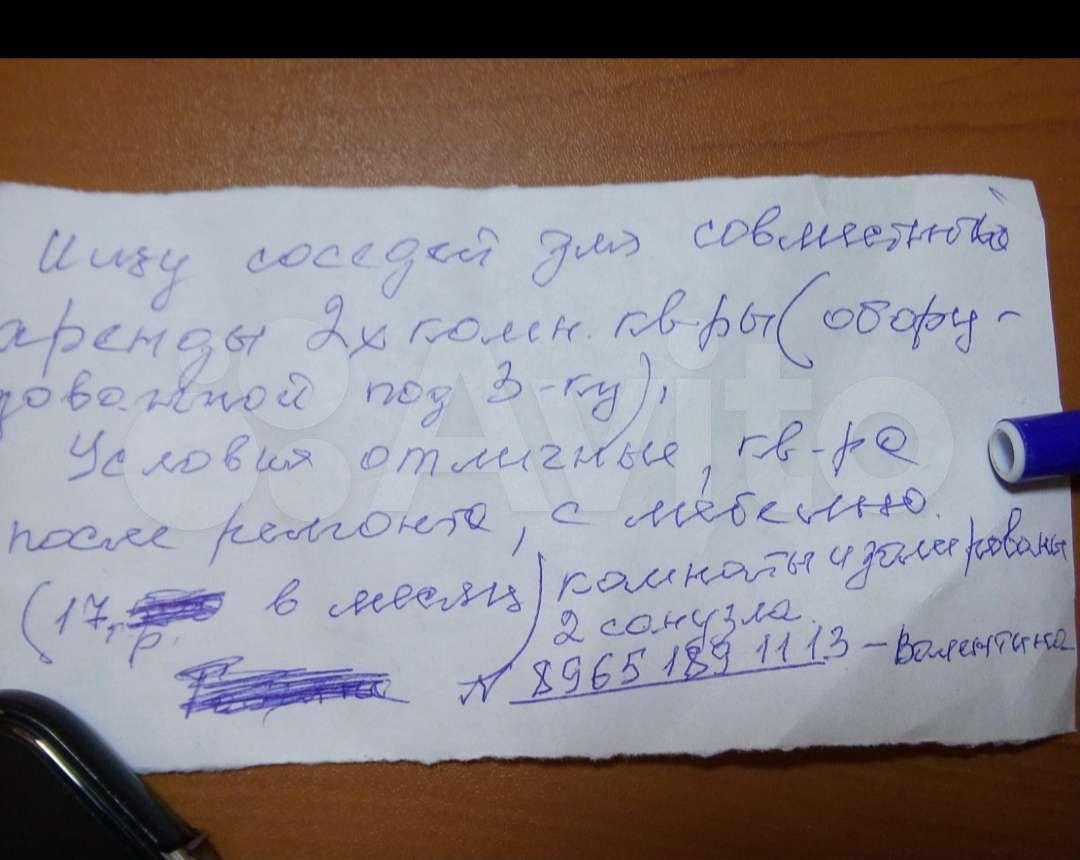 Ищу соседей для совместной
аренды 2х комн. кв-ры (обору-
дованной под 3-ку),
Условия отличные, кв-ра
после ремонта, с мебелью.
(17, р. в месяц) комнаты изолированы
2 санузла.
N 8965 189 11 13 - Валентина
Avito